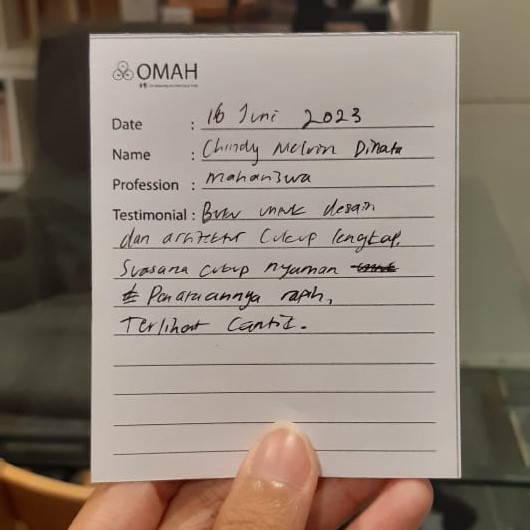 OMAH
Date : 16 Juni 2023
Name : Chindy Melvin Dinata
Profession : Mahasiswa
Testimonial : Buku untuk desain
dan arsitektur cukup lengkap.
Suasana cukup nyaman
Penataannya rapih,
Terlihat Cantik.